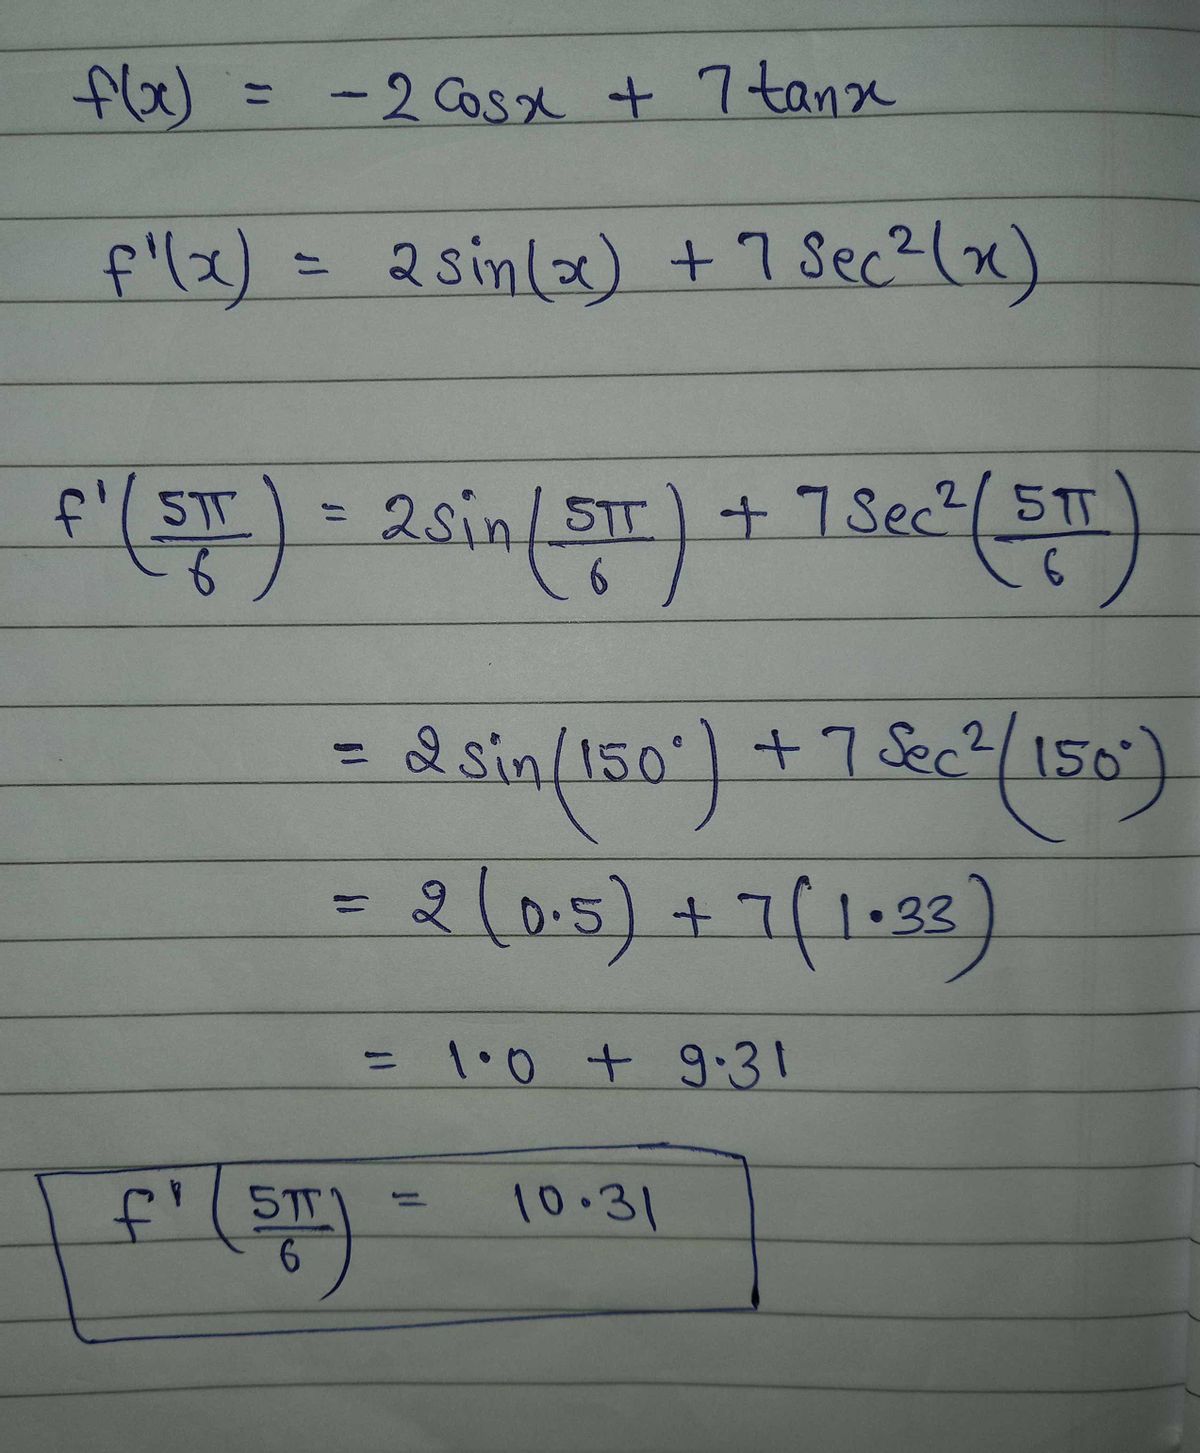 f(x) = -2 Cosx + 7 tanx
f'(x) = 2 sin(x) + 7 Sec²(x)
f'(5π/6) = 2 sin(5π/6) + 7 Sec²(5π/6)
= 2 sin(150°) + 7 Sec²(150°)
= 2(0.5) + 7(1.33)
= 1.0 + 9.31
f'(5π/6) = 10.31